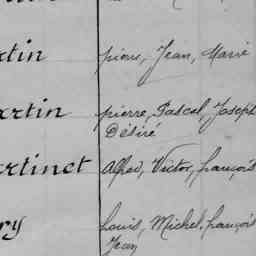 rtin pierre, Jean, Marie
artin pierre, Pascal, Joseph
Désiré
artinet Alfred, Victor, françois
ry Louis, Michel, françois
Jean